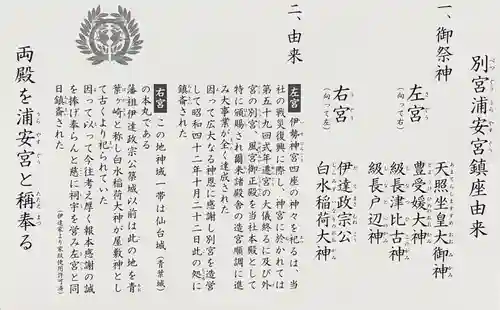 別宮浦安宮鎮座由来
一、御祭神
左宮
(向って右)
天照坐皇大御神
豊受媛大神
級長津比古神
級長戸辺神
右宮
(向って左)
伊達政宗公
白水稲荷大神
二、由来
左宮 伊勢神宮四座の神々を祀るは、当
社の戦災復興に際し、神宮に於かれては
第五十九回式年遷宮の大儀終るに及び外
宮の別宮、風宮御正殿を当社本殿として
特に頒賜され爾来諸殿舎の造営順調に進
み大事業が全く達成された
因つて広大なる神恩に感謝し別宮を造営
して昭和四十二年十月二十二日此の処に
鎮斎された
右宮 この地神域一帯は仙台城(青葉城)
の本丸である
藩祖伊達政宗公築城以前は此の地を青
葉ヶ崎と称し白水稲荷大神が屋敷神とし
て古くより祀られていた
因って以って今往考え厚く報本感謝の誠
を捧げ奉らんと慈に祠宇を営み左宮と同
日鎮斎された
(伊達家より家紋使用許可済)
両殿を浦安宮と稱奉る